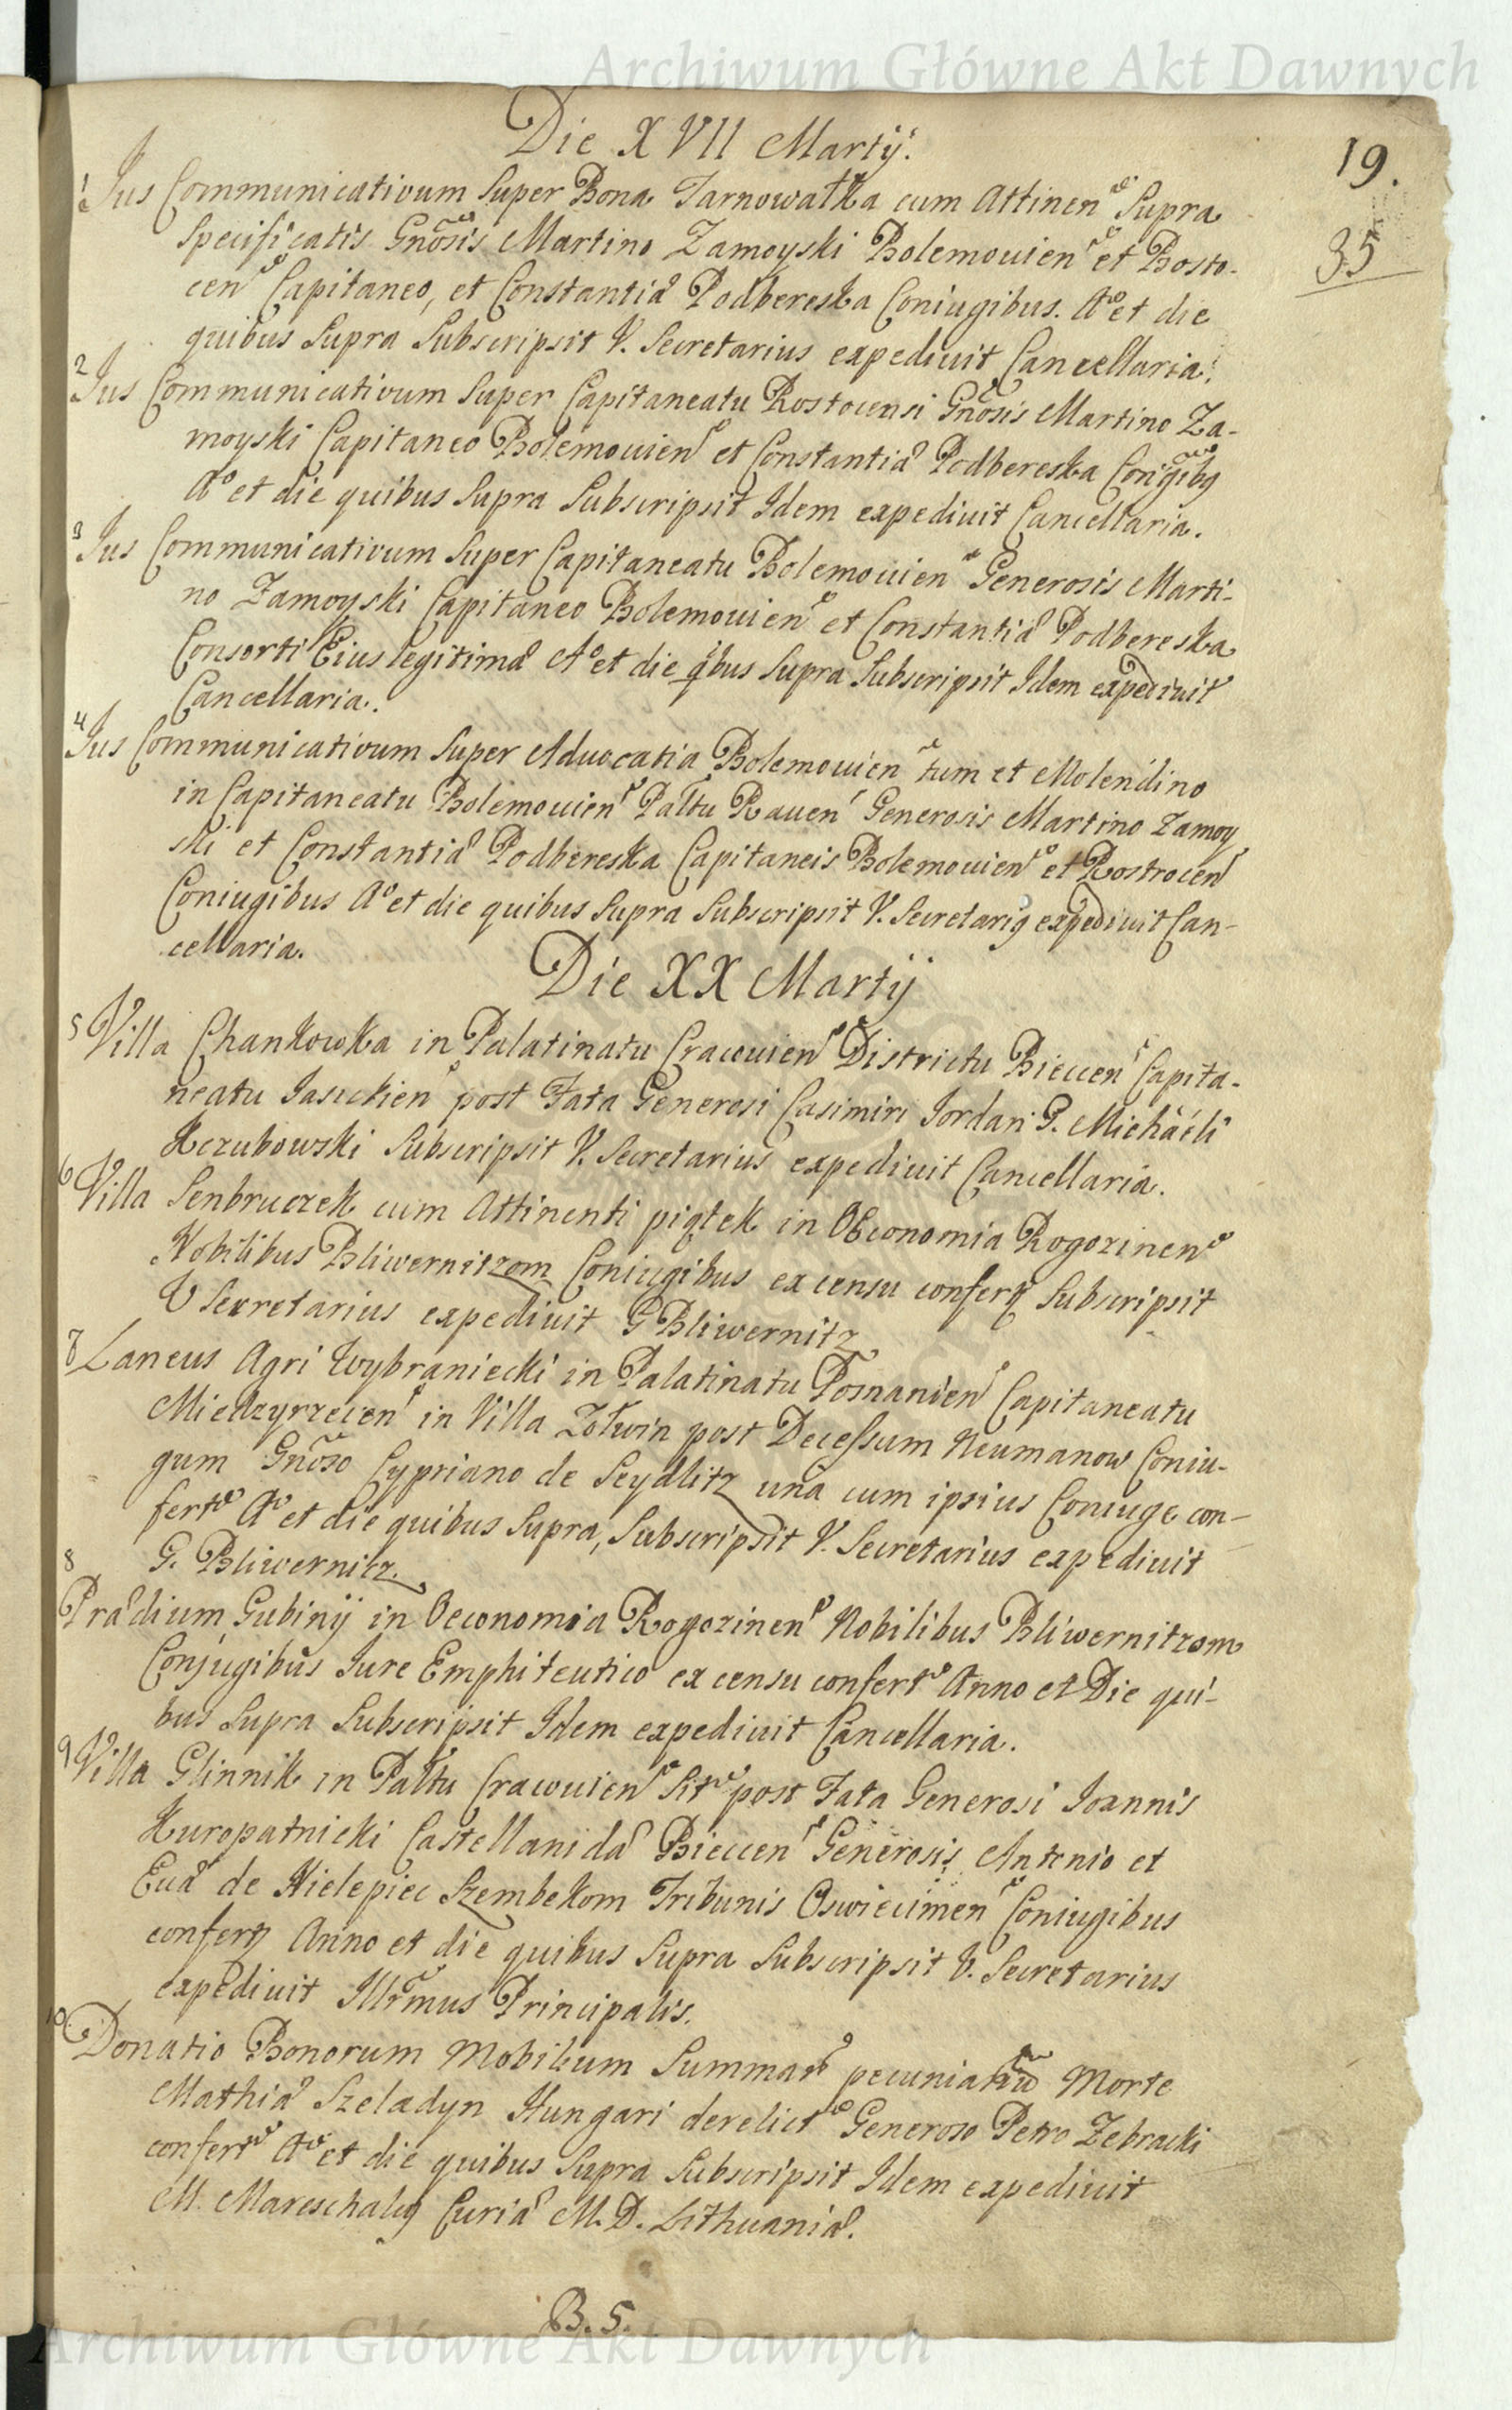 Archiwum Główne Akt Dawnych
Die XVII Martÿ.
19.
35
1 Ius Communicativum Super Bona Tarnowatka cum Attinen Supra
Specificatis Gnõsis Martino Zamoyski Bolemouien et Rosto-
cen Capitaneo, et Constantiæ Podbereska Coniugibus. Aº et die
quibus Supra Subscripsit V. Secretarius expediuit Cancellaria.
2 Ius Communicativum Super Capitaneatu Rostocensi Gnõsis Martino Za-
moyski Capitaneo Bolemouien et Constantiæ Podbereska Conigibq
Aº et die quibus Supra Subscripsit Idem expediuit Cancellaria.
3 Ius Communicativum Super Capitaneatu Bolemouien Generosis Marti-
no Zamoyski Capitaneo Bolemouien et Constantiæ Podbereska
Consorti Eius legitimæ Aº et die qbus Supra Subscripsit Idem expediuit
Cancellaria.
4 Ius Communicativum Super Aduocatia Bolemouien tum et Molendino
in Capitaneatu Bolemouien Paltu Rauen Generosis Martino Zamoy
ski et Constantiæ Podbereska Capitaneis Bolemouien et Rostrocen
Coniugibus Aº et die quibus Supra Subscripsit V. Secretariq expediuit Can-
cellaria.
Die XX Martÿ
5 Villa Chankowka in Palatinatu Cracouien Districtu Biecen Capita-
neatu Iasickien post Fata Generosi Casimiri Iordan G. Michaëli
Kczubowski Subscripsit V. Secretarius expediuit Cancellaria.
6 Villa Senbruczek cum Attinenti piątek in OEconomia Rogozinen
Nobilibus Bliwernitzom Coniugibus ex censu confert Subscripsit
V Secretarius expediuit G Bliwernitz
7 Laneus Agri Wybraniecki in Palatinatu Posnanien Capitaneatu
Miedzyrzecen in Villa Zołwin post Decessum Neumanow Coniu-
gum Gnõso Cypriano de Seydlitz una cum ipsius Coniuge con-
fert Aº et die quibus Supra, Subscripsit V. Secretarius expediuit
G. Bliwernitz.
8 Prædium Gubinÿ in Oeconomia Rogozinen Nobilibus Bliwernitzom
Conjugibus Iure Emphiteutico ex censu confert Anno et Die qui-
bus Supra Subscripsit Idem expediuit Cancellaria.
9 Villa Glinnik in Paltu Cracouien Sit post Fata Generosi Ioannis
Kuropatnicki Castellanidæ Biecen Generosis Antonio et
Euæ de Kielepiec Szembekom Tribunis Oswiecimen Coniugibus
confert Anno et die quibus Supra Subscripsit V. Secretarius
expediuit Illrmus Principalis.
10 Donatio Bonorum Mobilium Summar pecuniarũ Morte
Mathiæ Szeladyn Hungari derelict Generoso Petro Zebracki
confert Aº et die quibus Supra Subscripsit Idem expediuit
M. Mareschalq Curiæ M. D. Lithuaniæ.
B. 5.
Archiwum Główne Akt Dawnych